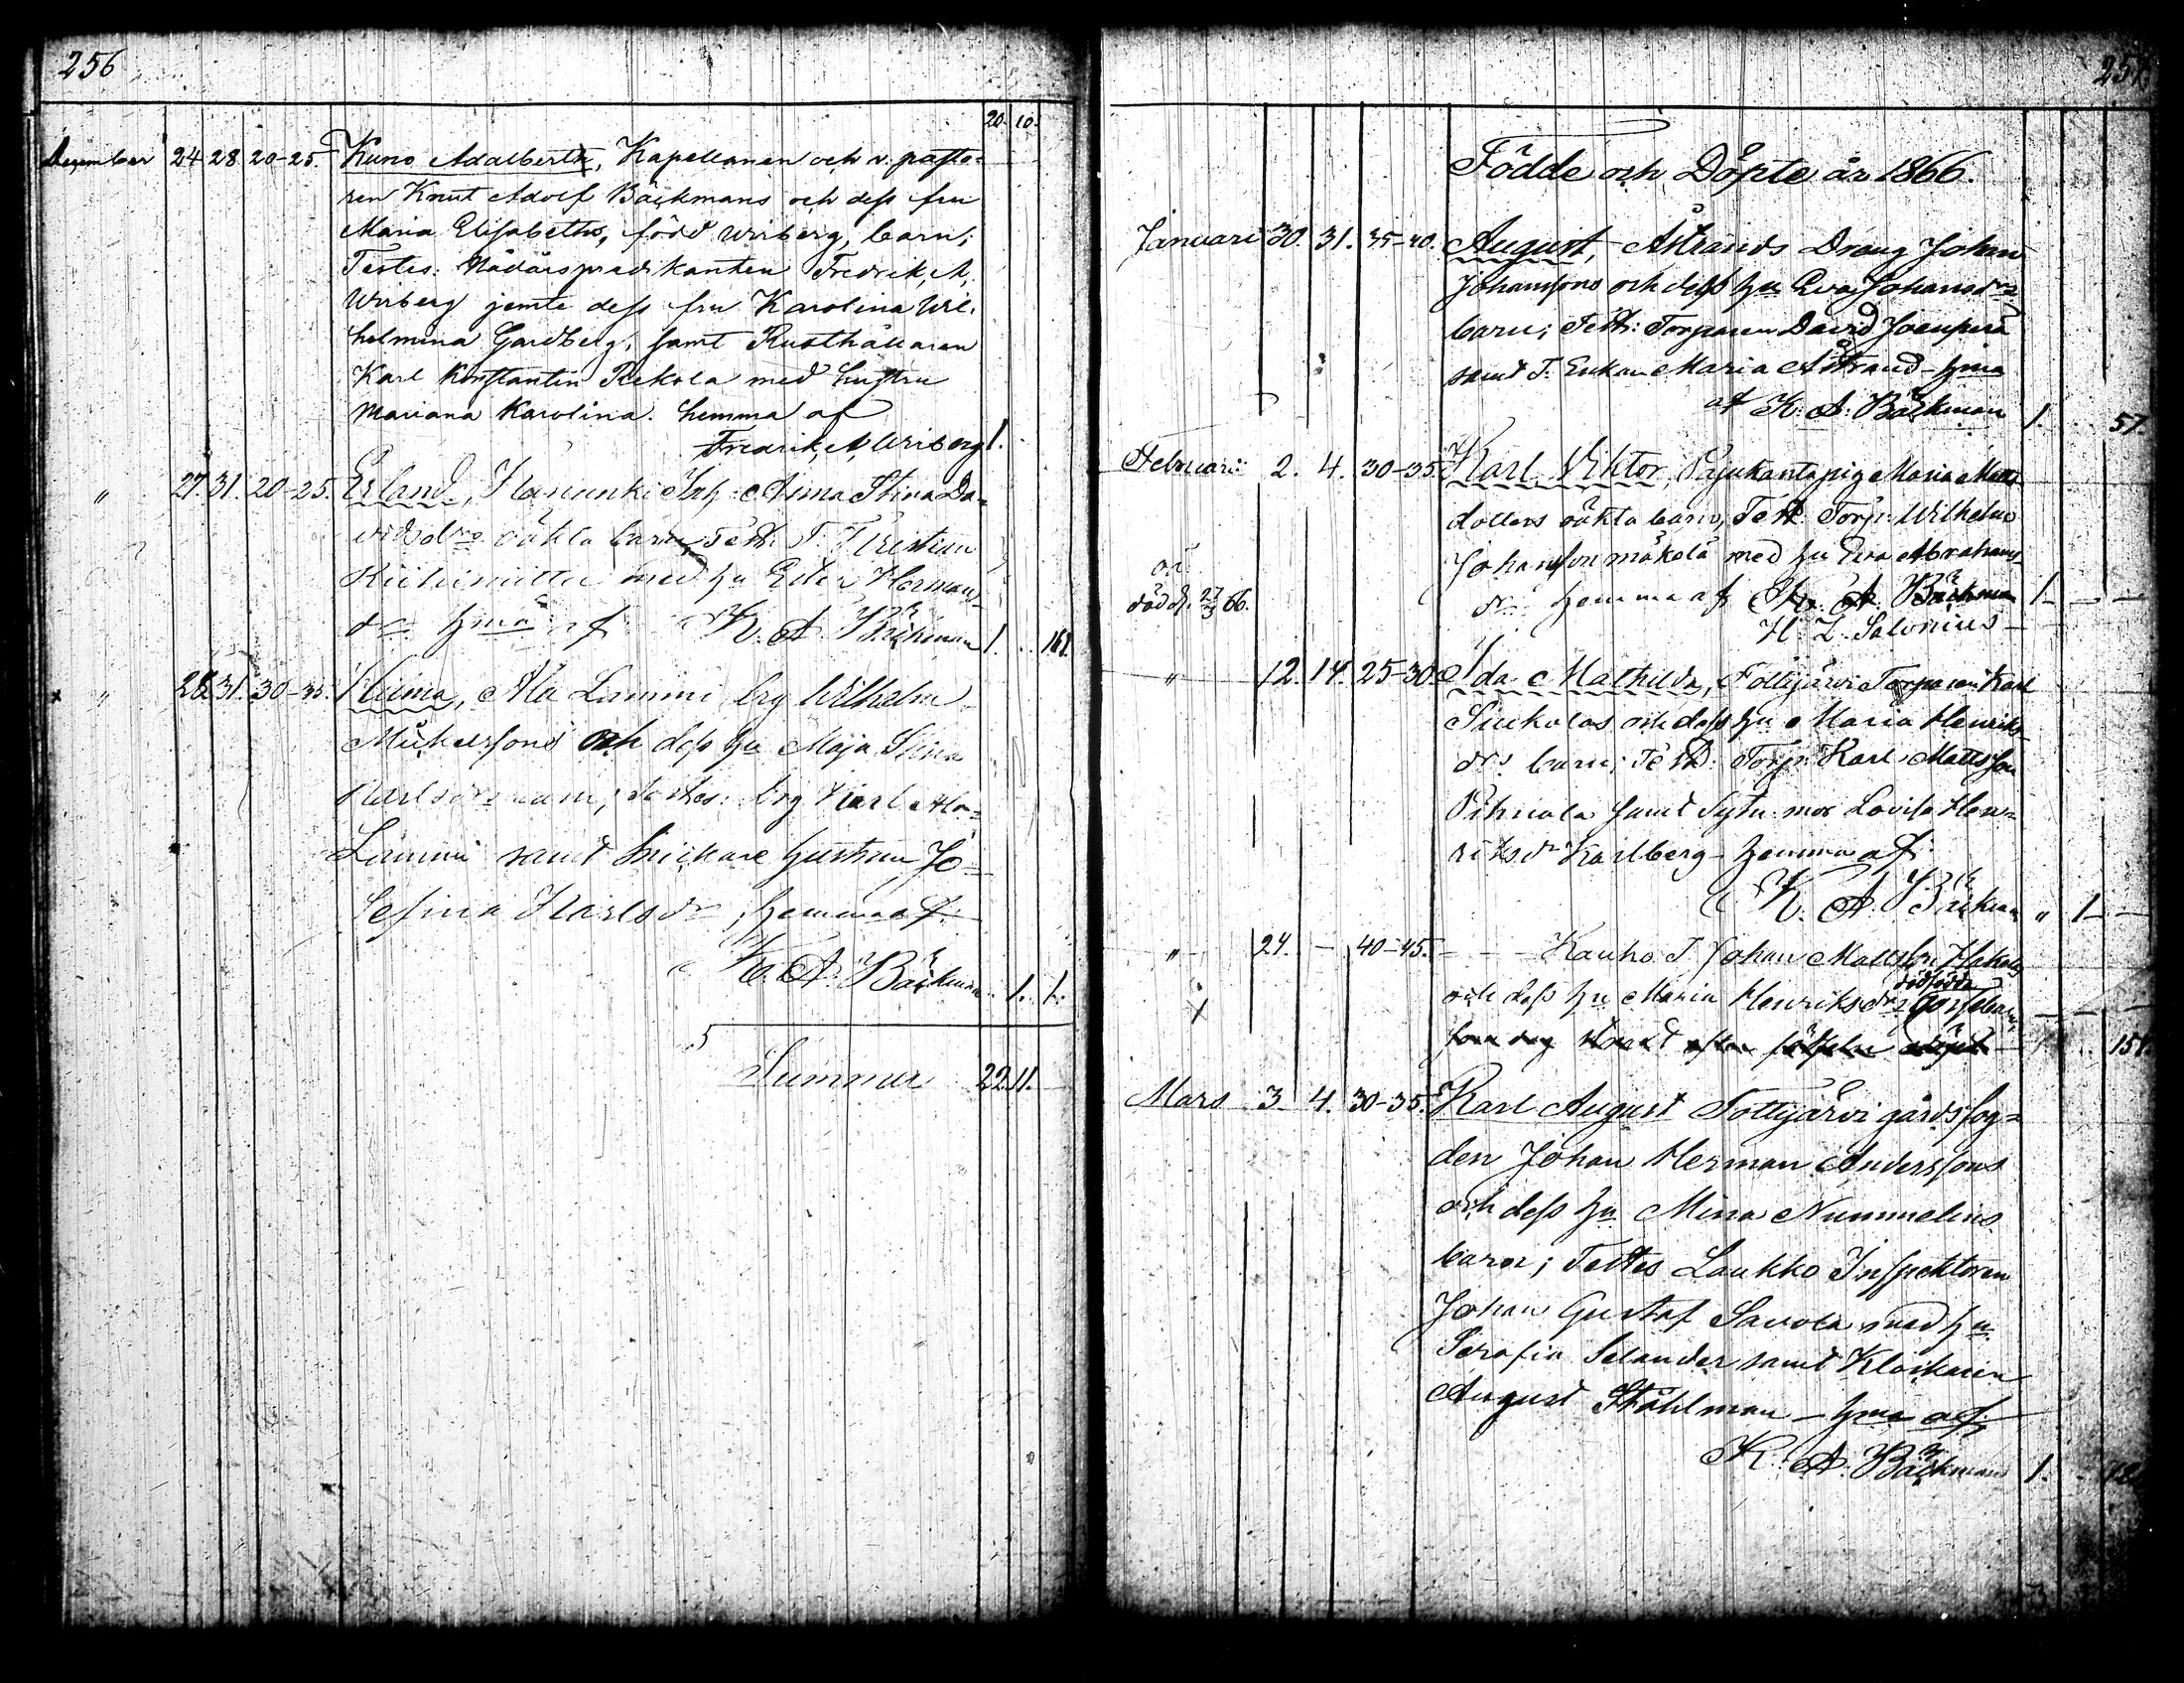 256
20. 10.
December 24 28. 20-25. Kuno Adalbert, Kapellanen och v. pasto-
ren Knut Adolf Bäckmans och dess fru
Maria Elisabeths, född Wirberg, barn;
Testes: Nådårspredikanten Fredrik A,
Wirberg jemte dess fru Karolina Wil-
helmina Gardberg, samt Rusthållaren
Karl Konstantin Rekola med hustru
Mariana Karolina. hemma af
Fredrik A Wirberg 1.
" 27. 31. 20-25. Erland, Anna Stina Da-
vidsdrs oäkta barn, Test: T.
med hu Herman-
dr hma af K. A. Bäckman 1.
" 28. 31. 30-35. Hilma, Ala Lammi brg Wilhelm
Mickelsons och dess hu Maja Stina
Karlsdrs barn; Testes: brg Karl Ala-
Lammi samt Snickare hustrun Jo-
sefina Karlsdr, hemma af
K. A. Bäckman 1. 1.
Summa 22 11.
257.
Födde och Döpte år 1866.
Januari 30. 31. 35-40. August, Åstrands Dräng Johan
Johanssons och dess hu Eva Johansdrs
barn; Test: Torparen David
samt T. Enkan Maria Åstrand - hma
af K. A. Bäckman 1. 57.
Februari 2. 4. 30-35. Karl Viktor, pig Maria Matts
dotters oäkta barn, Test: Torp. Wilhelm
oä Johansson Mäkelä med hu Eva Abrahams-
död d. 27/3 66. dr hemma af K. A. Bäckman 1 - -
H. Z. Salonius -
" 12. 14. 25-30. Ida Mathilda, Tottijärvi Torparen Karl
och dess hu Maria Henriks-
drs barn; Test: Torp. Karl Mattsson
samt Sytn. mor Lovisa Hen-
riksdr Karlberg - hemma af
K. A. Bäckman " 1 -
" 24. - 40-45. - - - Kauko T. Johan Mattsson
dödfödda
och dess hu Maria Henriksdrs gossebarn, - - -
151.
Mars 3. 4. 30-35. Karl August Tottijärvi gårdsfog-
den Johan Herman Anderssons
och dess hu Mina Nummelins
barn; Testes Laukko Inspektoren
Johan Gustaf Savola med hu
Serafia Selander samt Klockaren
August Ståhlman - hma af
K. A. Bäckman 1.